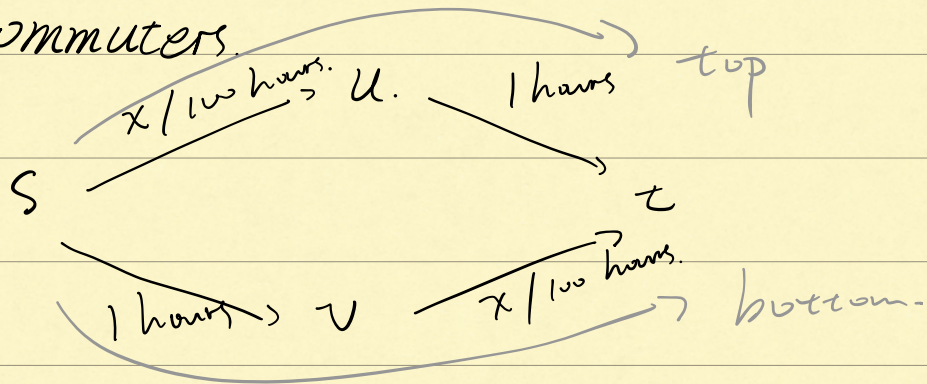 ommuters.
top
x/100 hours.
U.
1 hours
S
t
1 hours
V
x/100 hours.
bottom.